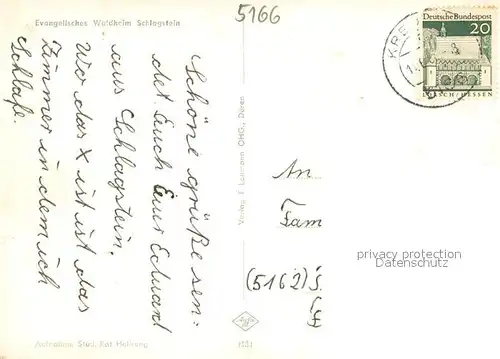 Evangelisches Waldheim Schlagstein
5166
Schöne grüße sen:
det Euch Euer Eduard
aus Schlagstein.
Wo das X ist ist das
Zimmer in dem ich
Schlafe.
Verlag F. Lohmann OHG., Düren
Deutsche Bundespost
20
LORSCH/HESSEN
KRE
An
Fam
(5162)
privacy protection
Datenschutz
Aufnahme Stud. Rat